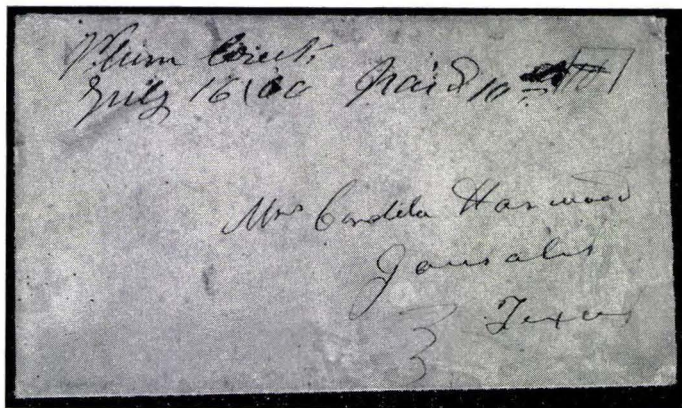 Plum Creek
July 16/60 Paid 10
Mrs Cordelia Harwood
Gonsales
Texas
3